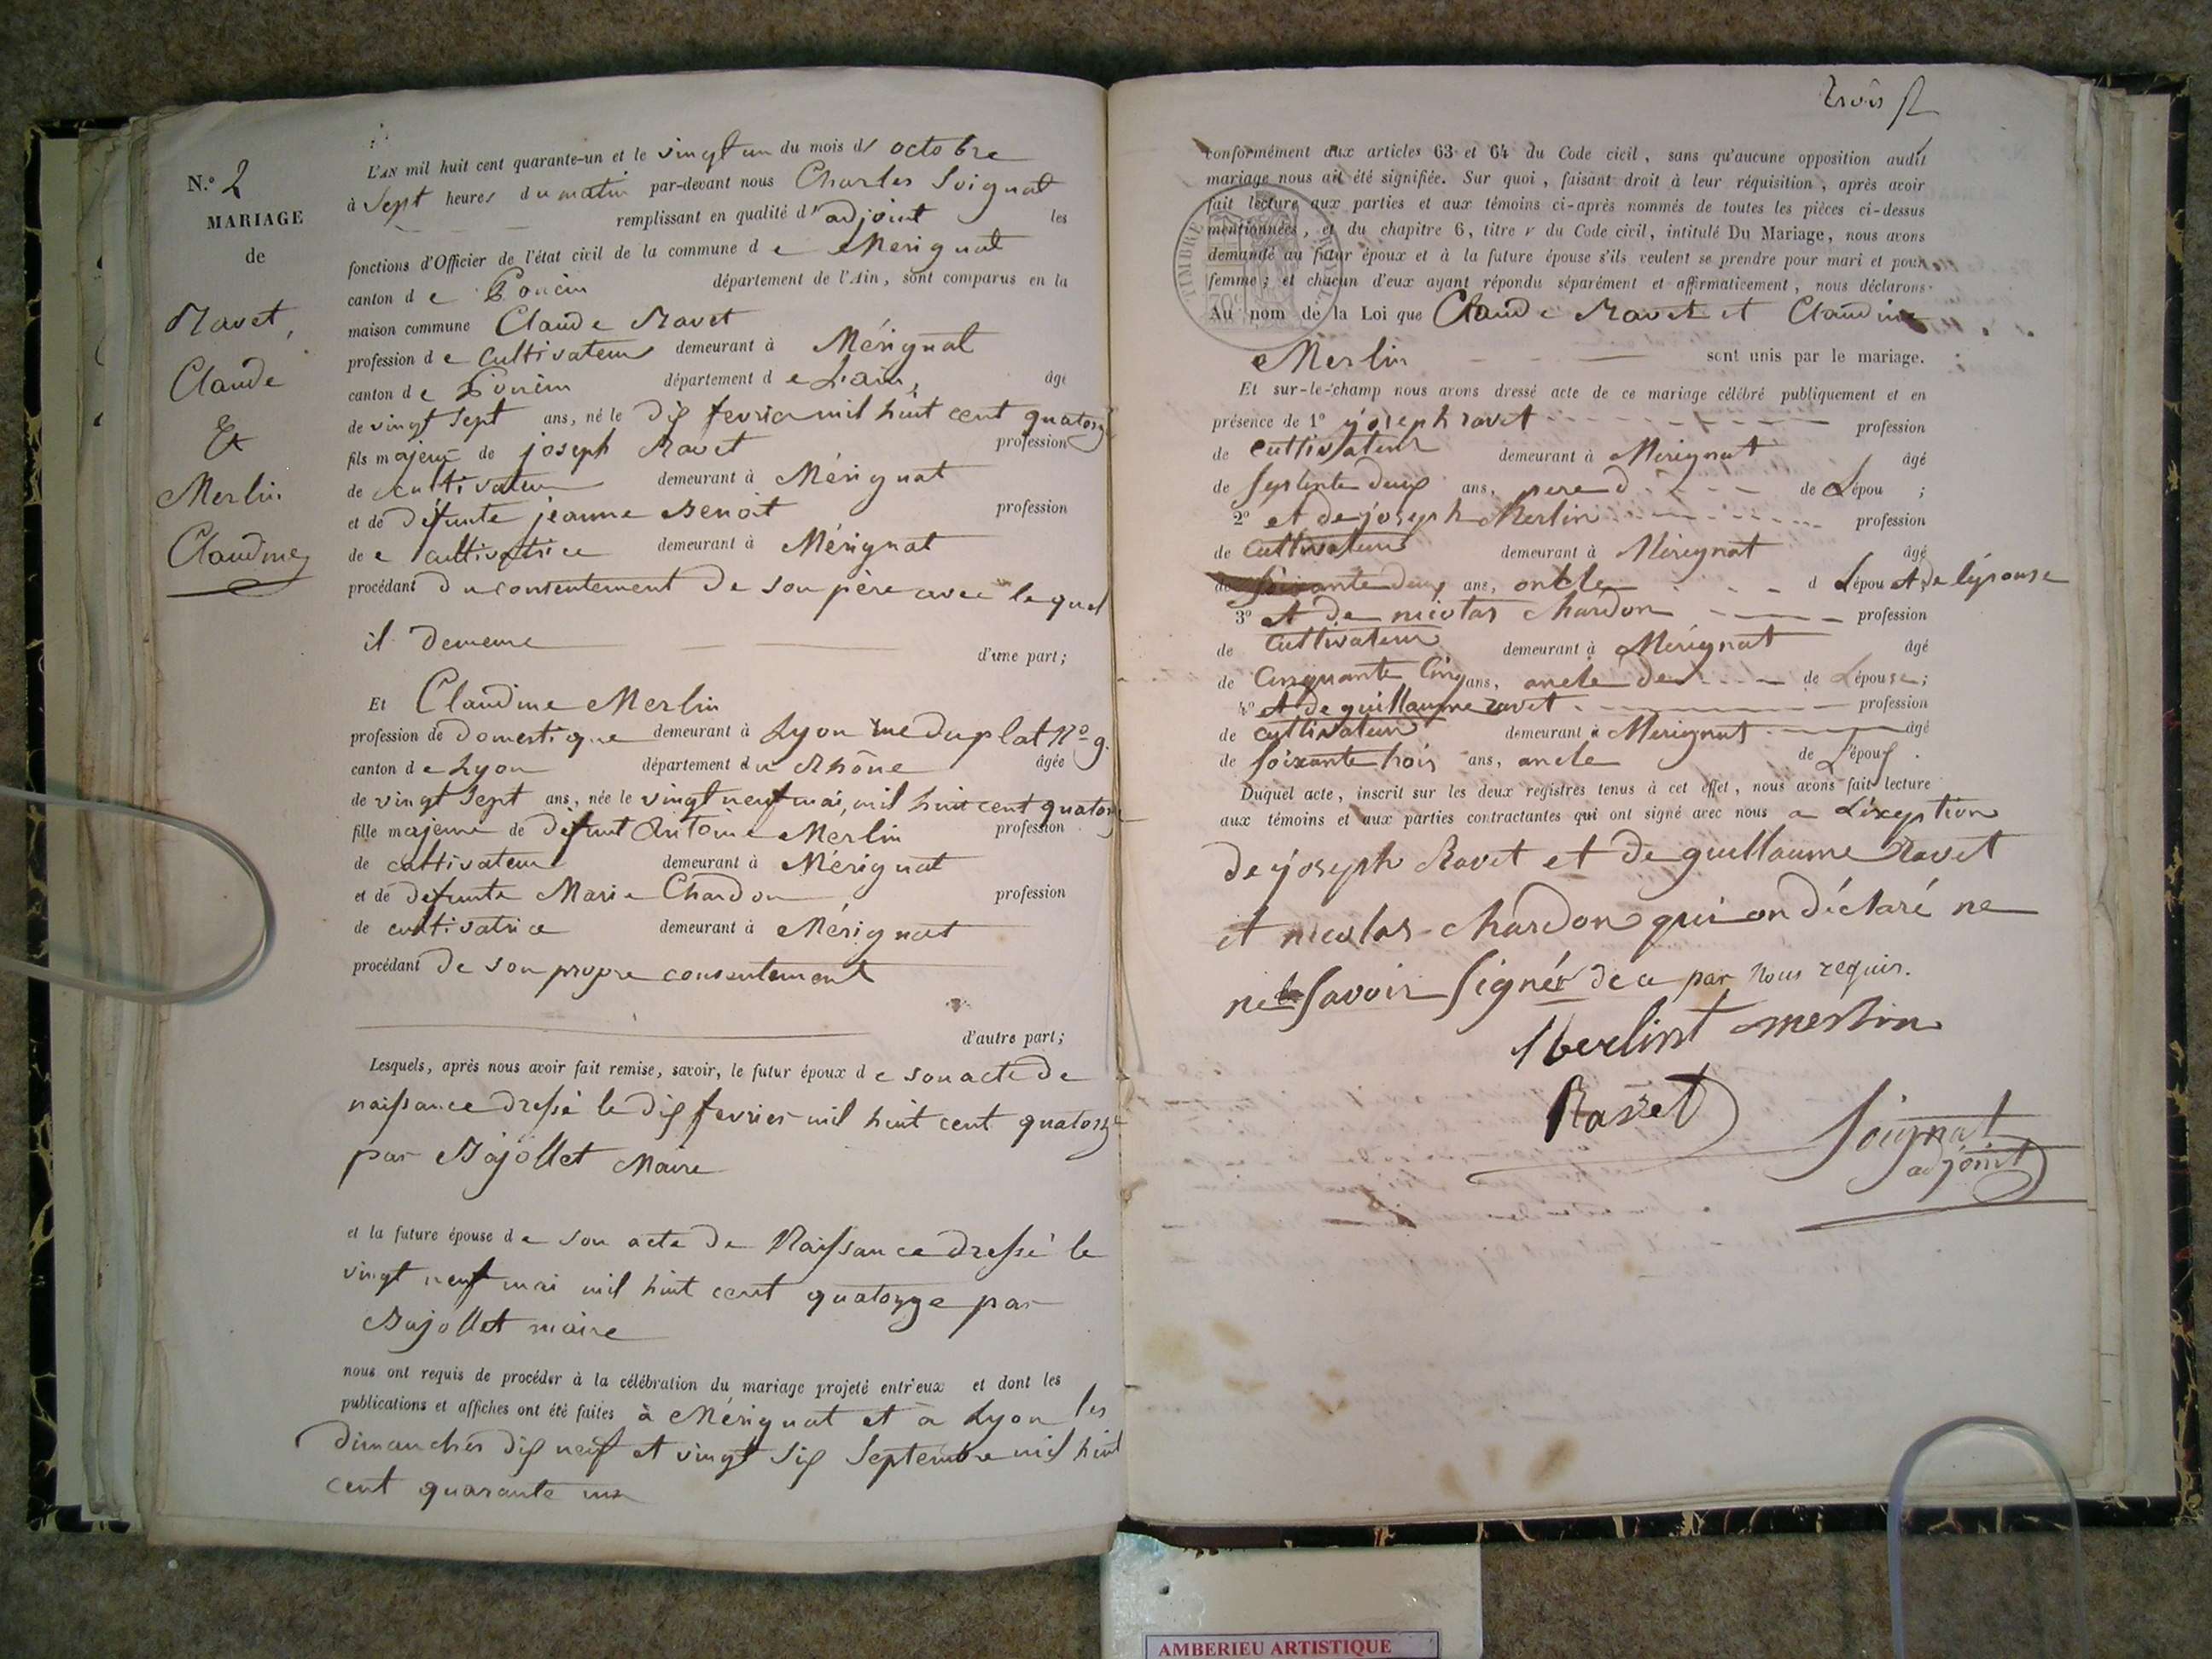 N.° 2
MARIAGE
de
Ravet,
Claude
Et
Merlin
Claudine
L'AN mil huit cent quarante-un et le vingt un du mois d' octobre
à Sept heures du matin par-devant nous Charles Soignat
remplissant en qualité d' adjoint les
fonctions d'Officier de l'état civil de la commune d e Mérignat
canton d e Poncin département de l'Ain, sont comparus en la
maison commune Claude Ravet
profession d e cultivateur demeurant à Mérignat
canton d e Poncin département d e L'ain, âgé
de vingt Sept ans, né le dix fevrier mil huit cent quatorze
fils majeur de joseph Ravet profession
de cultivateur demeurant à Mérignat
et de défunte jeanne Benoit profession
de e cultivatrice demeurant à Mérignat
procédant du consentement de son père avec lequel
il demeure d'une part;
Et Claudine Merlin
profession de domestique demeurant à Lyon rue du plat N° 9.
canton d e Lyon département du Rhône âgée
de vingt Sept ans, née le vingt neuf mai, mil huit cent quatorze
fille majeure de défunt Antoine Merlin profession
de cultivateur demeurant à Mérignat
et de défunte Marie Chardon profession
de cultivatrice demeurant à Mérignat
procédant de son propre consentement
d'autre part;
Lesquels, après nous avoir fait remise, savoir, le futur époux d e son acte de
naissance dressé le dix fevrier mil huit cent quatorze
par Bajollet Maire
et la future épouse d e son acte de Naissance dressé le
vingt neuf mai mil huit cent quatorze par
Bajollet maire
nous ont requis de procéder à la célébration du mariage projeté entr'eux et dont les
publications et affiches ont été faites à Mérignat et à Lyon les
dimanches dix neuf et vingt Six Septembre mil huit
cent quarante un
trois
conformément aux articles 63 et 64 du Code civil, sans qu'aucune opposition audit
mariage nous ait été signifiée. Sur quoi, faisant droit à leur réquisition, après avoir
fait lecture aux parties et aux témoins ci-après nommés de toutes les pièces ci-dessus
mentionnées, et du chapitre 6, titre v du Code civil, intitulé Du Mariage, nous avons
demandé au futur époux et à la future épouse s'ils veulent se prendre pour mari et pour
femme; et chacun d'eux ayant répondu séparément et affirmativement, nous déclarons
Au nom de la Loi que Claude Ravet et Claudine
Merlin sont unis par le mariage.
Et sur-le-champ nous avons dressé acte de ce mariage célébré publiquement et en
présence de 1° joseph ravet profession
de cultivateur demeurant à Mérignat âgé
de ans, pere d de Lépou ;
2° et de joseph Merlin profession
de cultivateur demeurant à Mérignat âgé
de Soixante deux ans, oncle d Lépou et de lépouse
3° et de nicolas chardon profession
de cultivateur demeurant à Mérignat âgé
de Cinquante Cinq ans, oncle de de Lépouse;
4° et de guillaume ravet profession
de cultivateur demeurant à Mérignat âgé
de Soixante trois ans, oncle de L'époux.
Duquel acte, inscrit sur les deux registres tenus à cet effet, nous avons fait lecture
aux témoins et aux parties contractantes qui ont signé avec nous a Léxeption
de joseph Ravet et de guillaume Ravet
et nicolas chardon qui on déclaré ne
ne Savoir Signer de ce par Nous requis.
Merlint merlin
Ravet
Soignat
adjoint
TIMBRE ROYAL
70c
AMBERIEU ARTISTIQUE